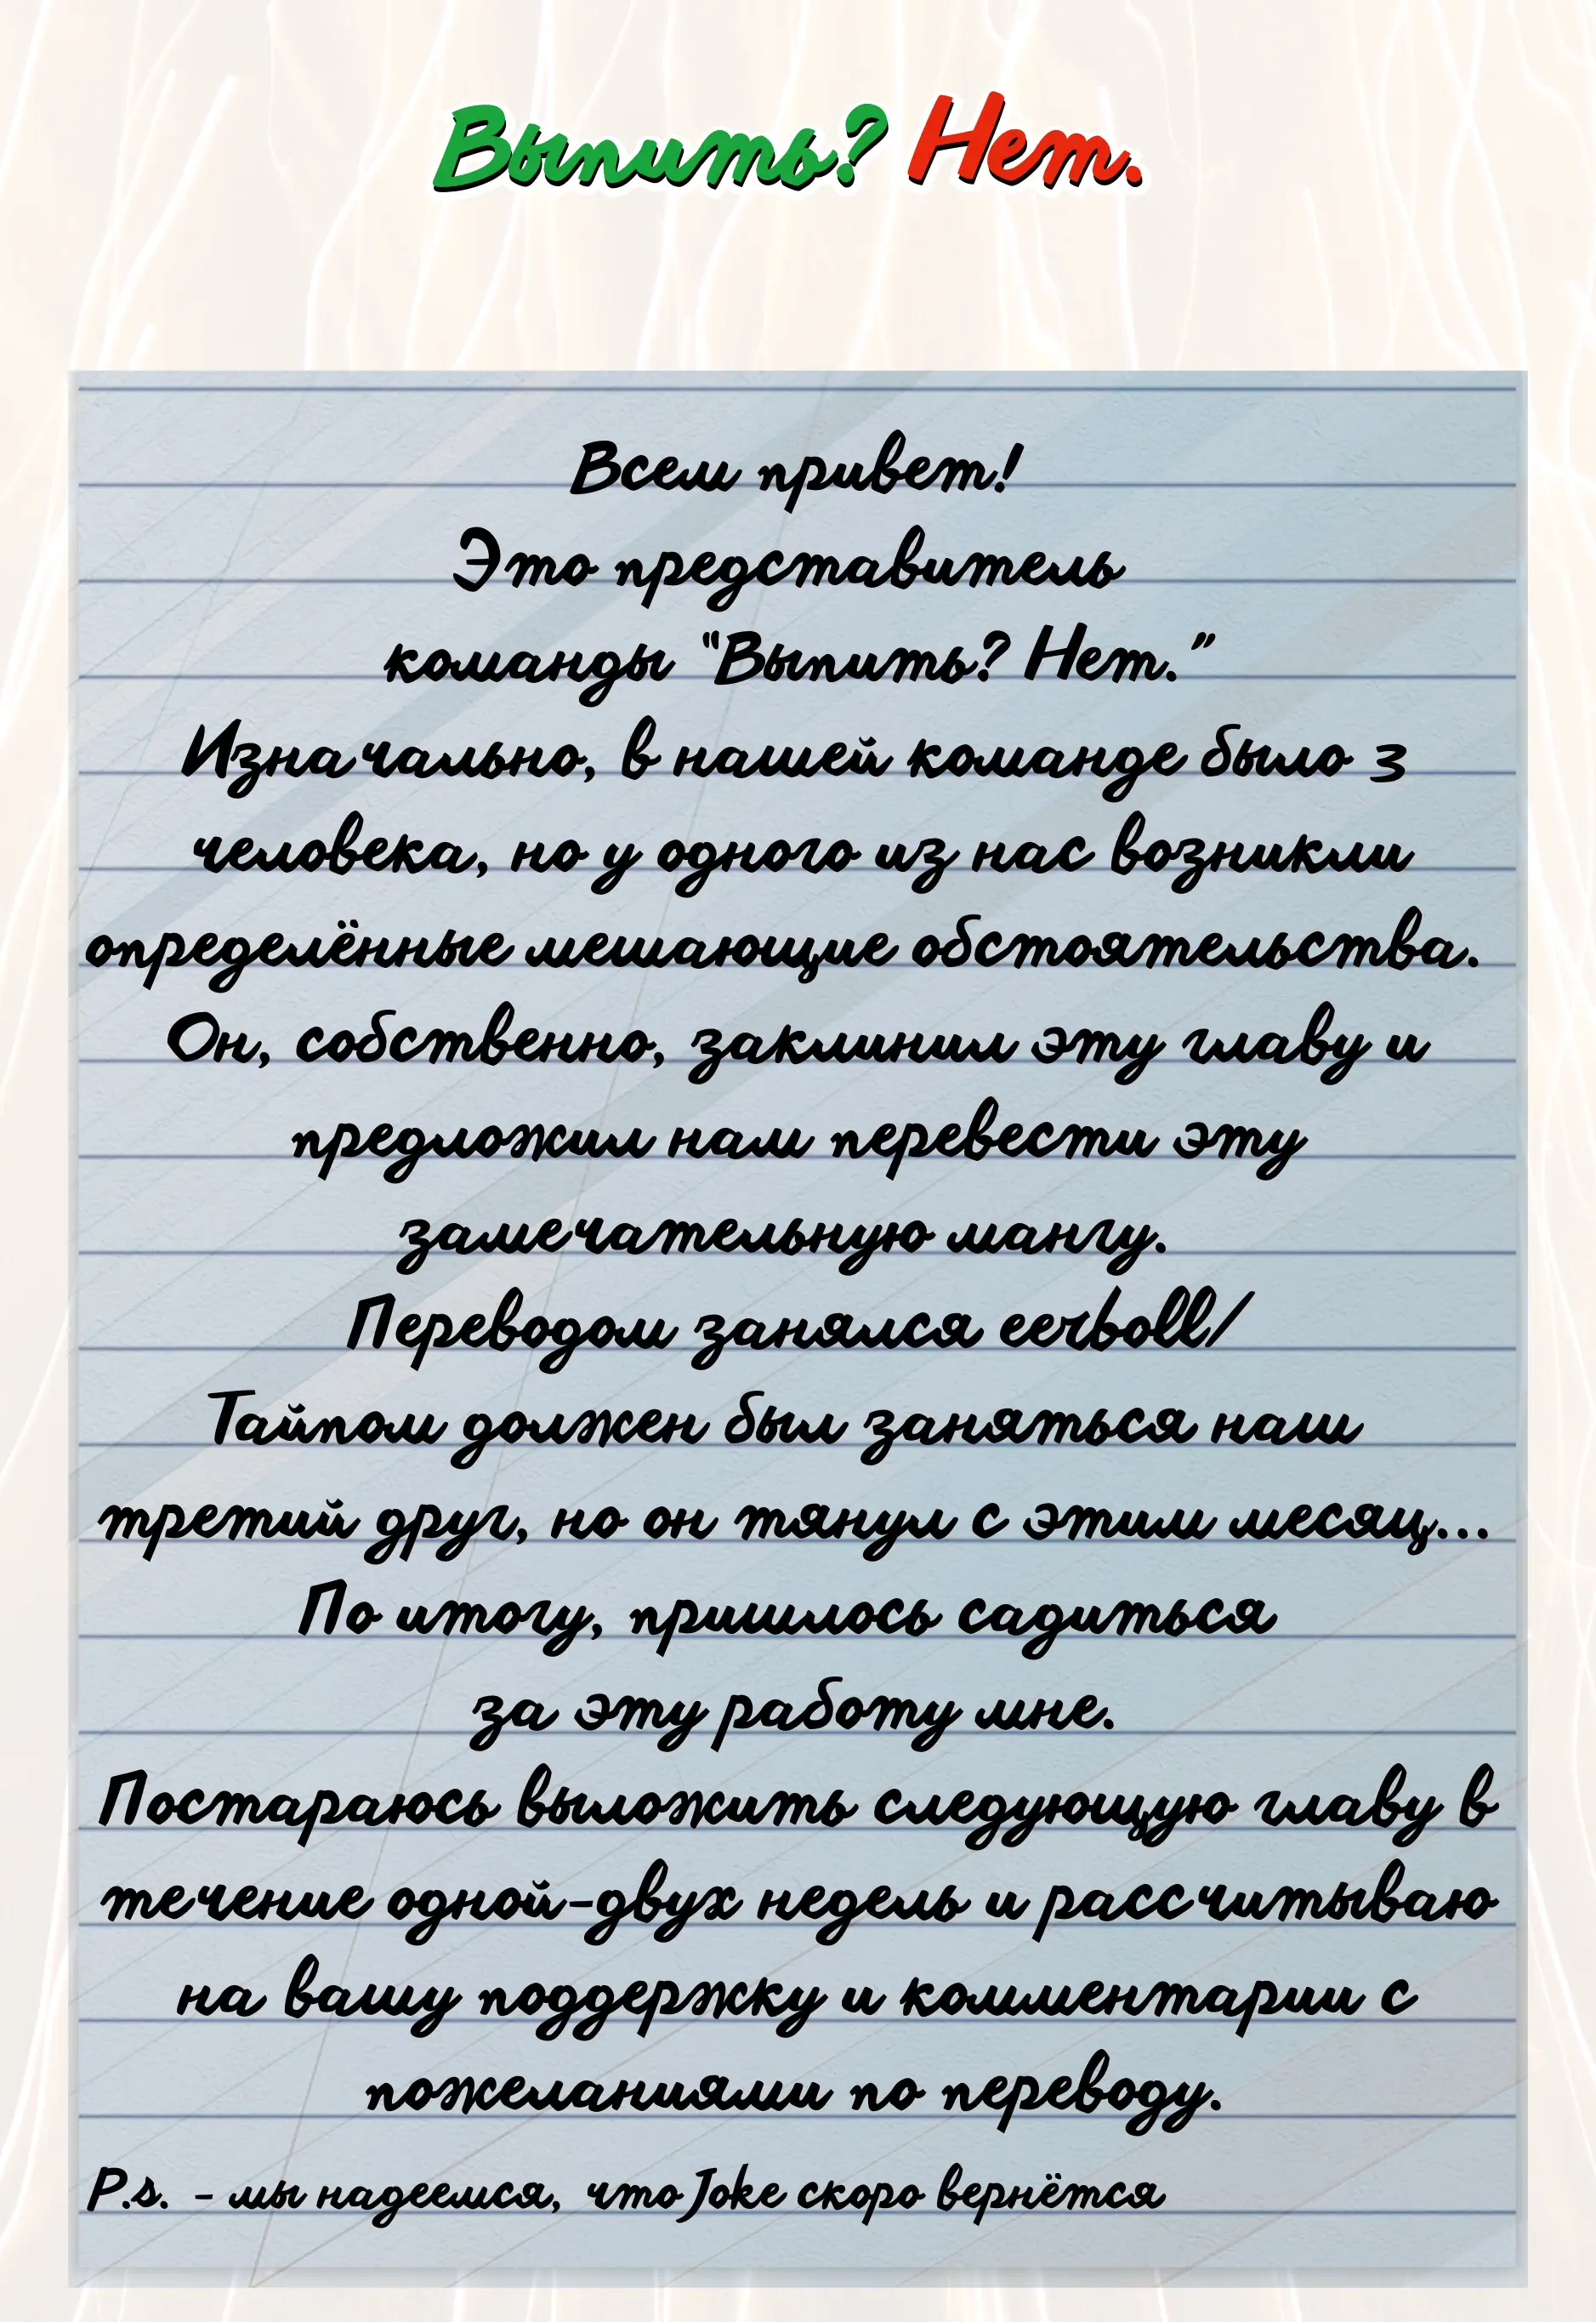 Выпить? Нет.
Всем привет!
Это представитель
команды "Выпить? Нет."
Изначально, в нашей команде было 3
человека, но у одного из нас возникли
определённые мешающие обстоятельства.
Он, собственно, заклинил эту главу и
предложил нам перевести эту
замечательную мангу.
Переводом занялся eerboll/
Тайпом должен был заняться наш
третий друг, но он тянул с этим месяц...
По итогу, пришлось садиться
за эту работу мне.
Постараюсь выложить следующую главу в
течение одной-двух недель и рассчитываю
на вашу поддержку и комментарии с
пожеланиями по переводу.
P.s. - мы надеемся, что Joke скоро вернётся